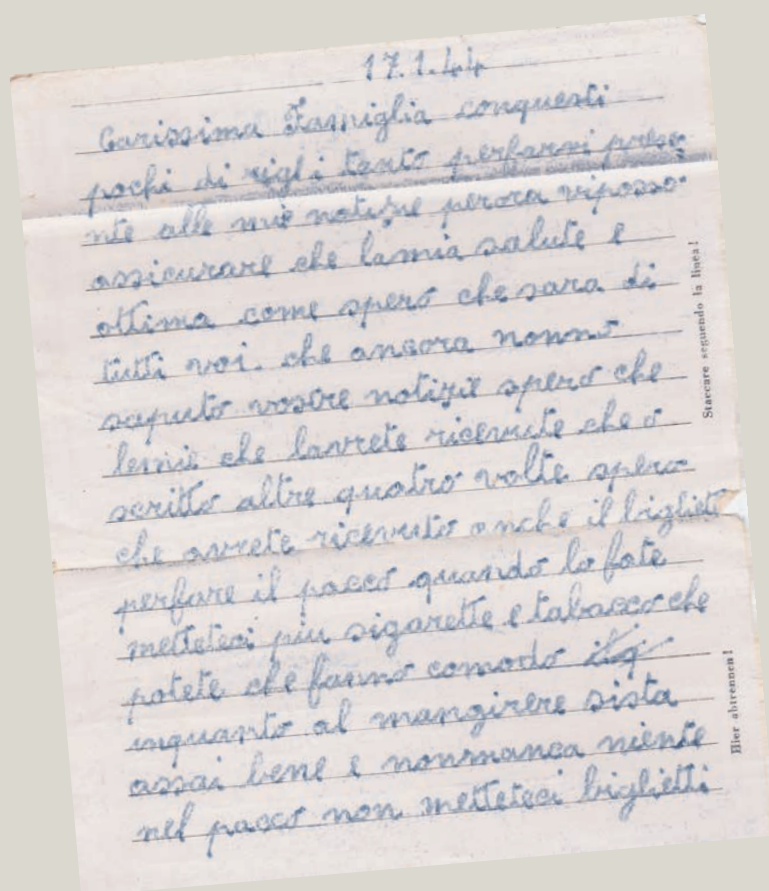 17.1.44
Carissima Famiglia conquesti
pochi di rigli tento perfarvi prese
nte alle mie notizie perora viposso
assicurare che lamia salute e
ottima come spero che sara di
tutti voi. che ancora nonnò
saputo vostre notizie spero che
lemie che lavrete ricevute che ò
scritto altre quatro volte spero
che avrete ricevuto anche il bigliett
perfare il pacco quando lo fate
metteteci piu sigarette e tabacco che
potete che fanno comodo
inquanto al mangirere sista
assai bene e nonmanca niente
nel pacco non metteteci biglietti
Staccare seguendo la linea!
Hier abtrennen!